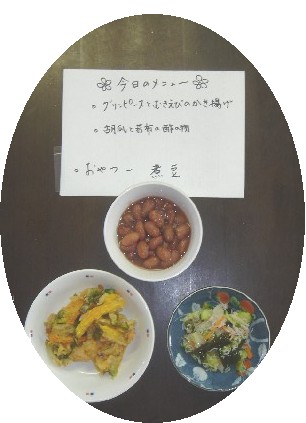 今日のメニュー
。グリンピースとむきえびのかき揚げ
。胡瓜と若布の酢の物
。おやつー 煮豆